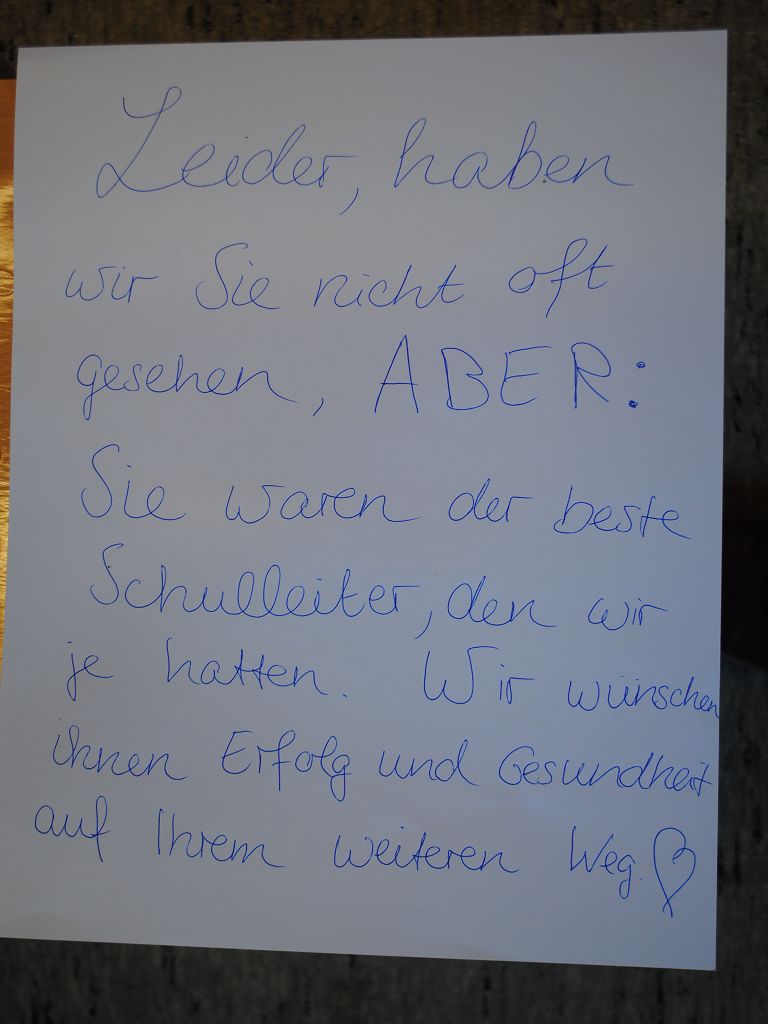 Leider, haben
wir Sie nicht oft
gesehen, ABER:
Sie waren der beste
Schulleiter, den wir
je hatten. Wir wünschen
ihnen Erfolg und Gesundheit
auf Ihrem weiteren Weg.♡